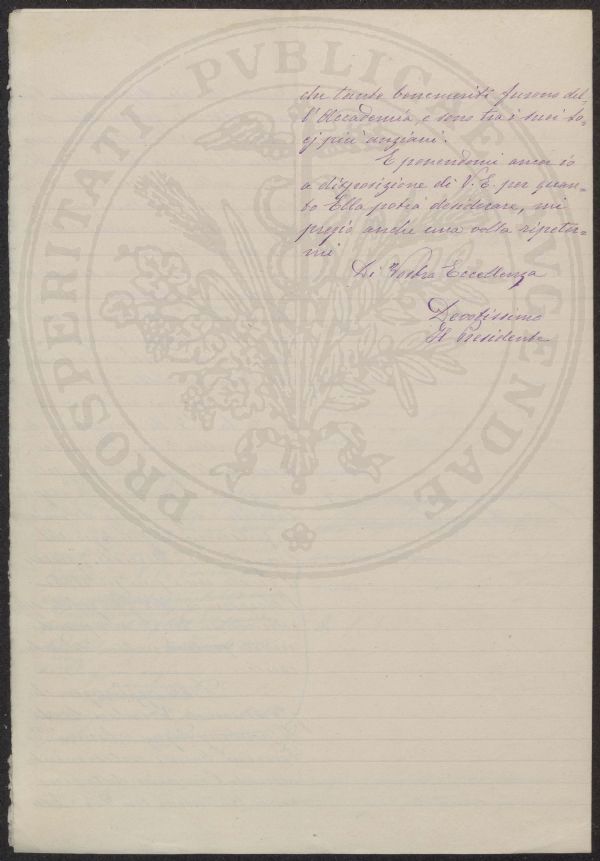 che tanto benemeriti furono del-
l'Accademia, e sono tra i suoi so-
cj più anziani.
E ponendomi anca io
a disposizione di V. E. per quan-
to Ella potrà desiderare, mi
pregio anche una volta ripeter-
mi
Di Vostra Eccellenza
Devotissimo
Il Presidente
PROSPERITATI PVBLICAE AVGENDAE